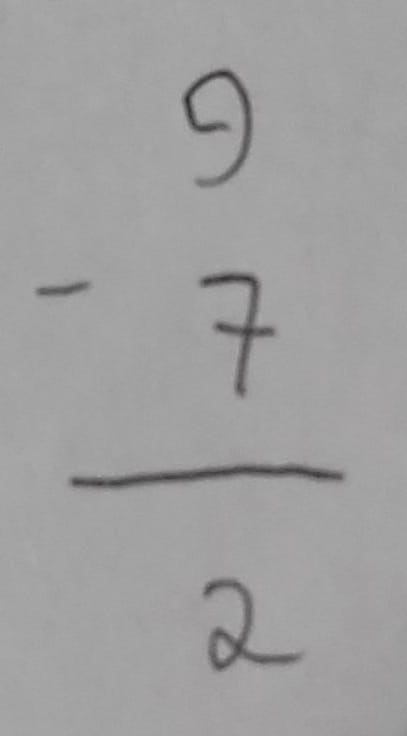 9
- 7
2